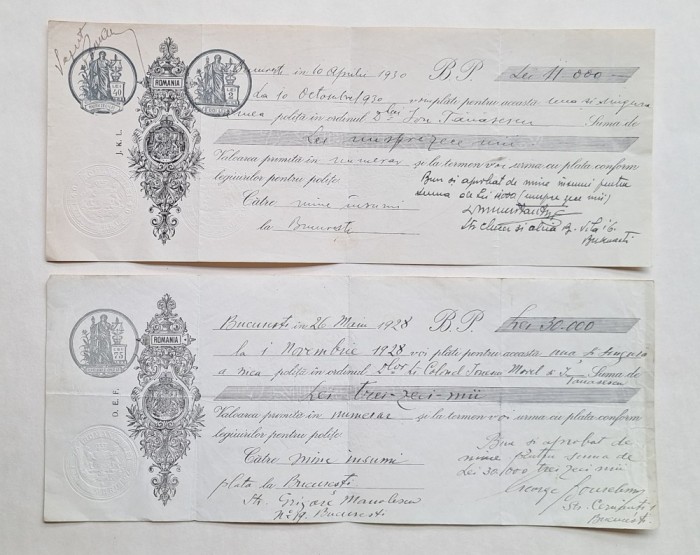 ROMANIA
J. K. L.
București in 10 Aprilie 1930 B. P. Lei 11.000
La 10 Octombrie 930 voi plăti pentru aceasta una si singura
mea poliță in ordinul D-lui Ion Tănăsescu Suma de
Lei unsprezece mii
Valoarea primită in numerar și la termen voi urma cu plata conform
legiuirilor pentru polițe
Către mine insumi
la București
Bun si aprobat de mine insumi pentru
suma de Lei 11000 (unsprezece mii)
București
ROMANIA
O. E. F.
București in 26 Maiu 1928 B. P. Lei 30.000
la 1 Novembrie 1928 voi plăti pentru aceasta una și singură
a mea poliță in ordinul D-lor Lt Colonel Morel & I
Tanasescu Suma de
Lei trei-zeci-mii
Valoarea primită in numerar și la termen voi urma cu plata conform
legiuirilor pentru polițe
Către mine insumi
plata la București
Str. Grigore Manolescu
București
Bun si aprobat de
mine pentru suma de
Lei 30.000 trei zeci mii
George
Str.
București